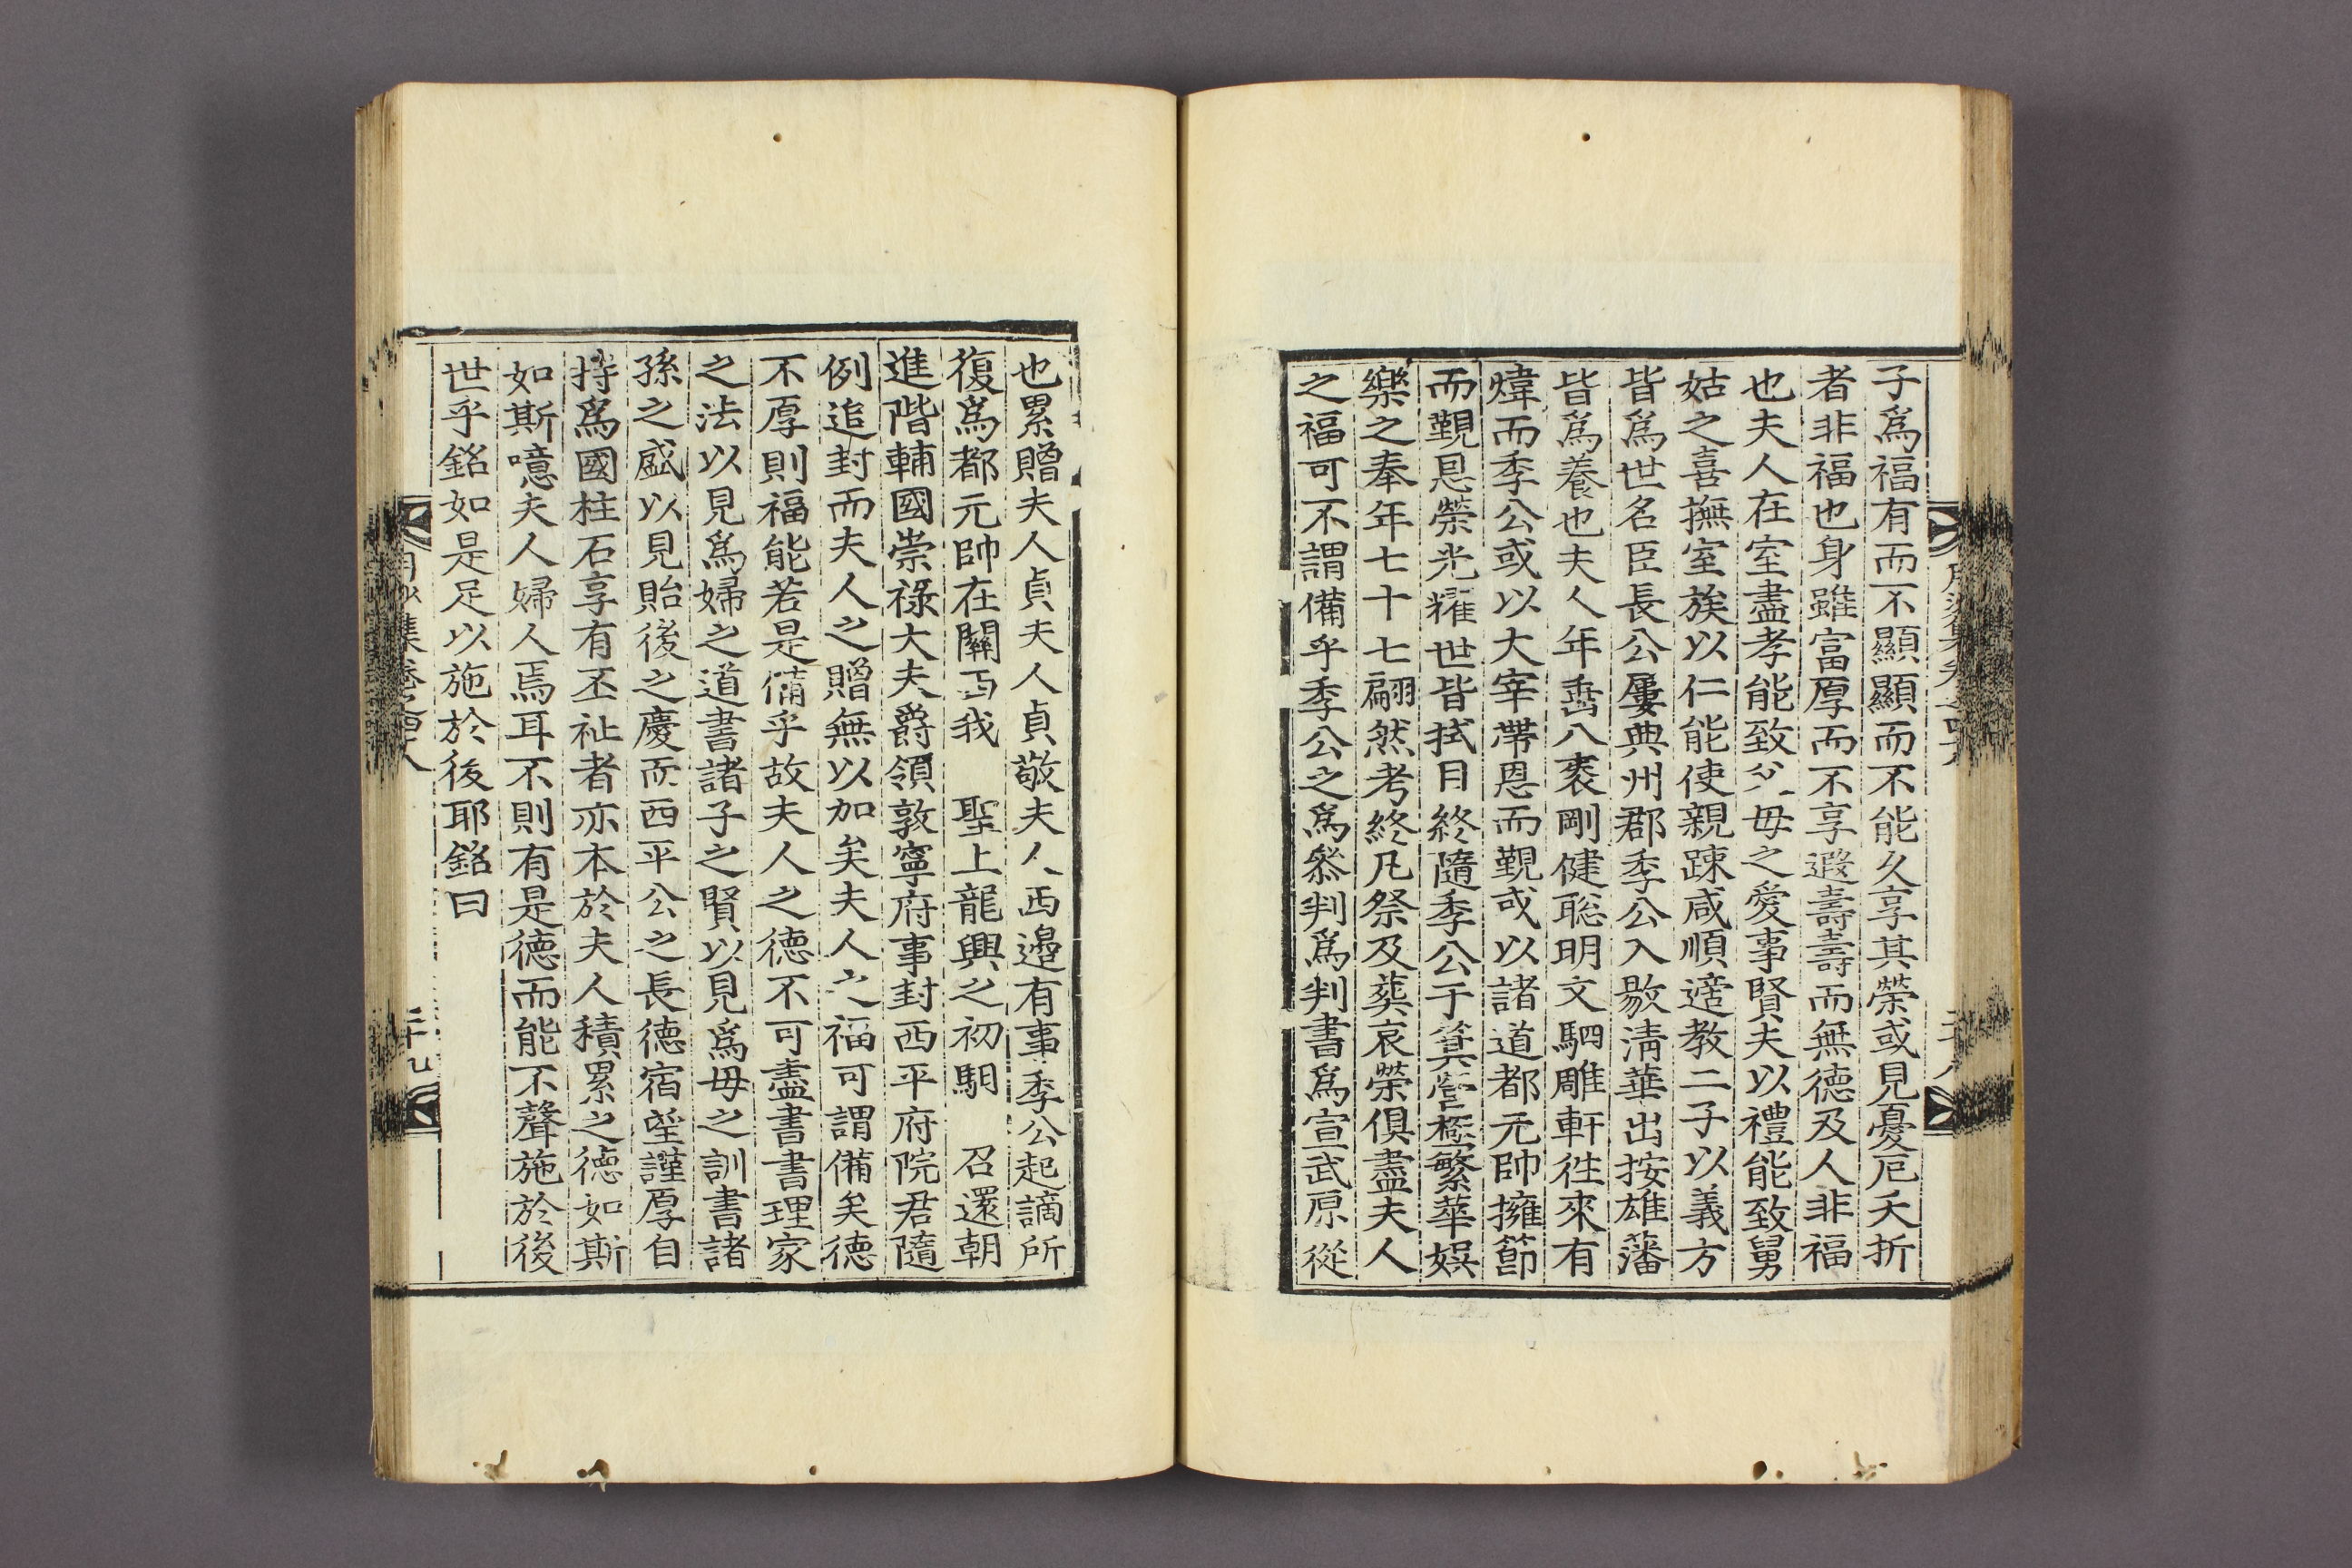 子爲福有而不顯顯而不能久享其榮或見憂戹夭折
者非福也身雖富厚而不享遐壽壽而無德及人非福
也夫人在室盡孝能致父母之愛事賢夫以禮能致舅
姑之喜撫室族以仁能使親踈咸順適教二子以義方
皆爲世名臣長公屢典州郡季公入敭淸華出按雄藩
皆爲養也夫人年垂八袠剛健聡明文駟雕軒徃來有
煒而季公或以大宰帶恩而覲或以諸道都元帥擁節
而覲恩榮光耀世皆拭目終隨季公于箕營極繁華娛
樂之奉年七十七翩然考終凡祭及葬哀榮俱盡夫人
之福可不謂備乎季公之爲叅判爲判書爲宣武原從
也累贈夫人貞夫人貞敬夫人西邉有事季公起謫所
復爲都元帥在關西我 聖上龍興之初馹 召還朝
進階輔國崇祿大夫爵領敦寧府事封西平府院君隨
例追封而夫人之贈無以加矣夫人之福可謂備矣德
不厚則福能若是備乎故夫人之德不可盡書書理家
之法以見爲婦之道書諸子之賢以見爲母之訓書諸
孫之盛以見貽後之慶而西平公之長德宿望謹厚自
持爲國柱石享有丕祉者亦本於夫人積累之德如斯
如斯噫夫人婦人焉耳不則有是德而能不聲施於後
世乎銘如是足以施於後耶銘曰